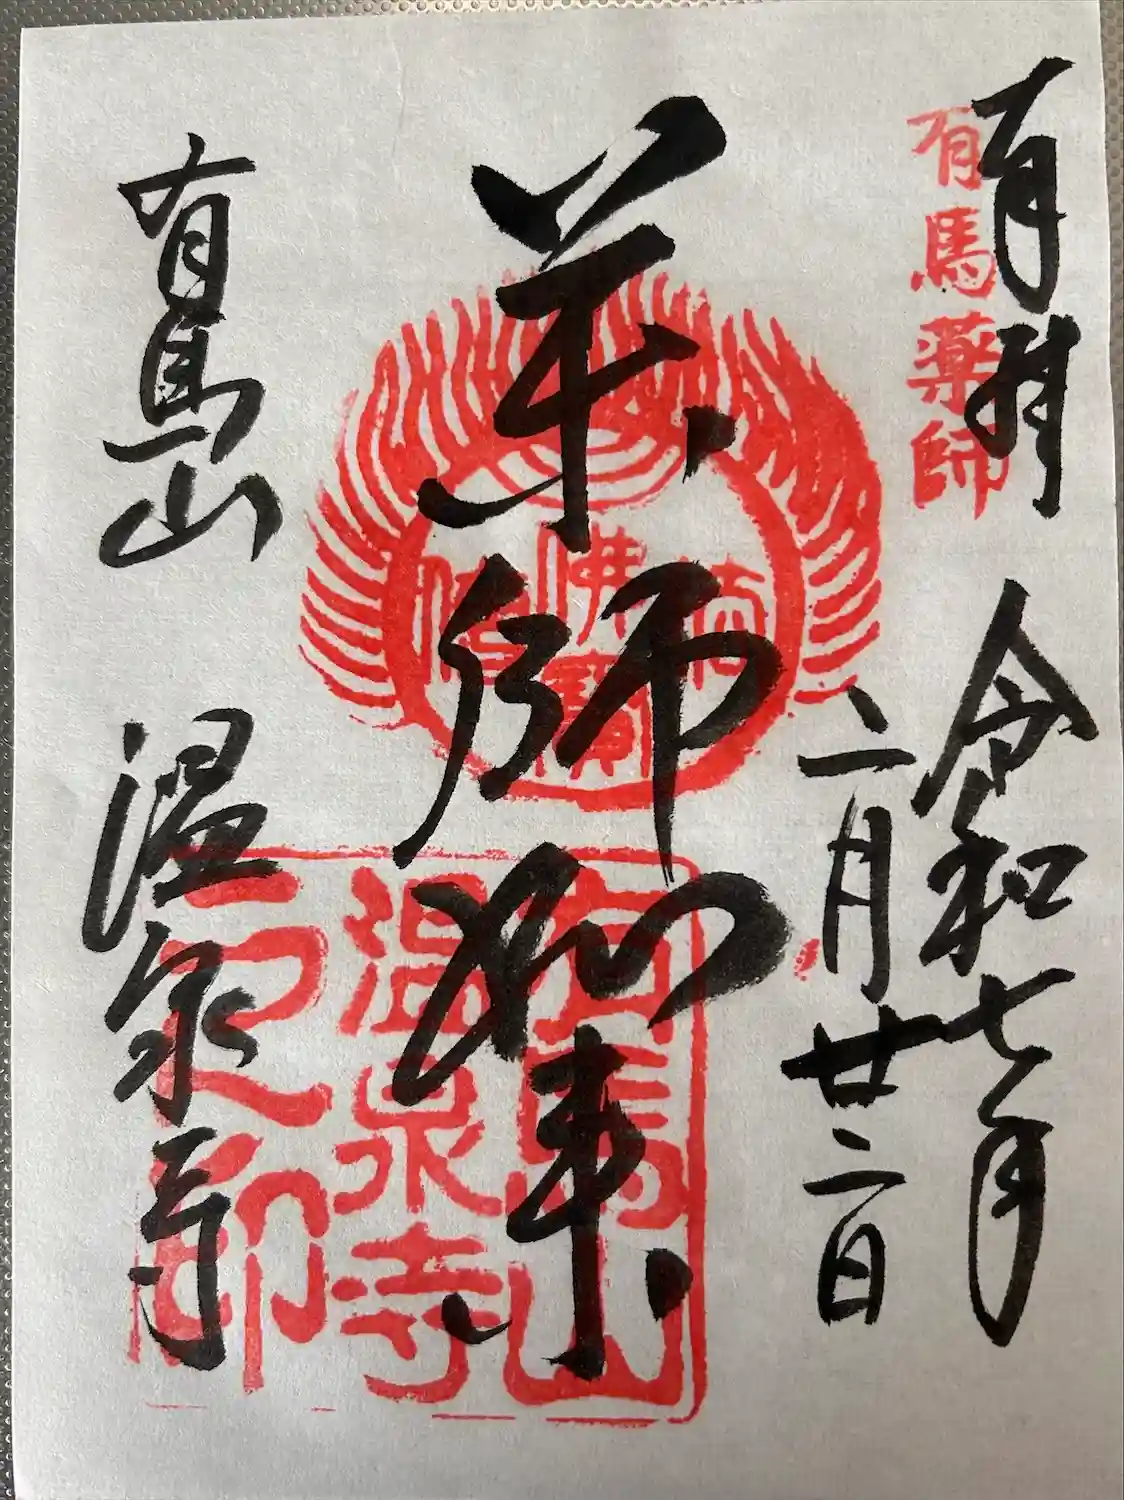 有馬薬師
令和七年
二月廿二日
薬師如来
佛
寶
僧
有馬山
温泉寺
有馬山 温泉寺